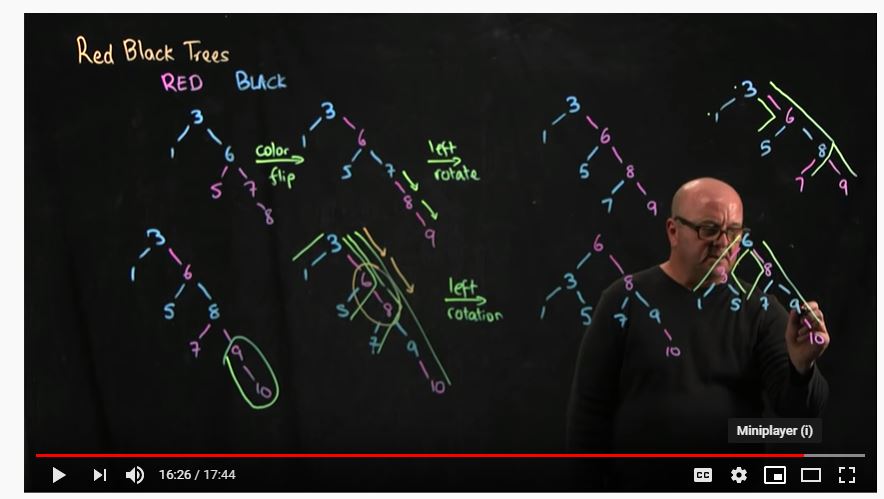 Red Black Trees
RED BLACK
3
1 6
5 7
8
color
flip
3
1 6
5 7
8
9
left
rotate
3
1 6
5 8
7 9
3
1 6
5 8
7 9
3
1 6
5 8
7 9
10
3
1 6
5 8
7 9
10
left
rotation
6
3 8
1 5 7 9
10
6
3 8
1 5 7 9
10
Miniplayer (i)
16:26 / 17:44
CC